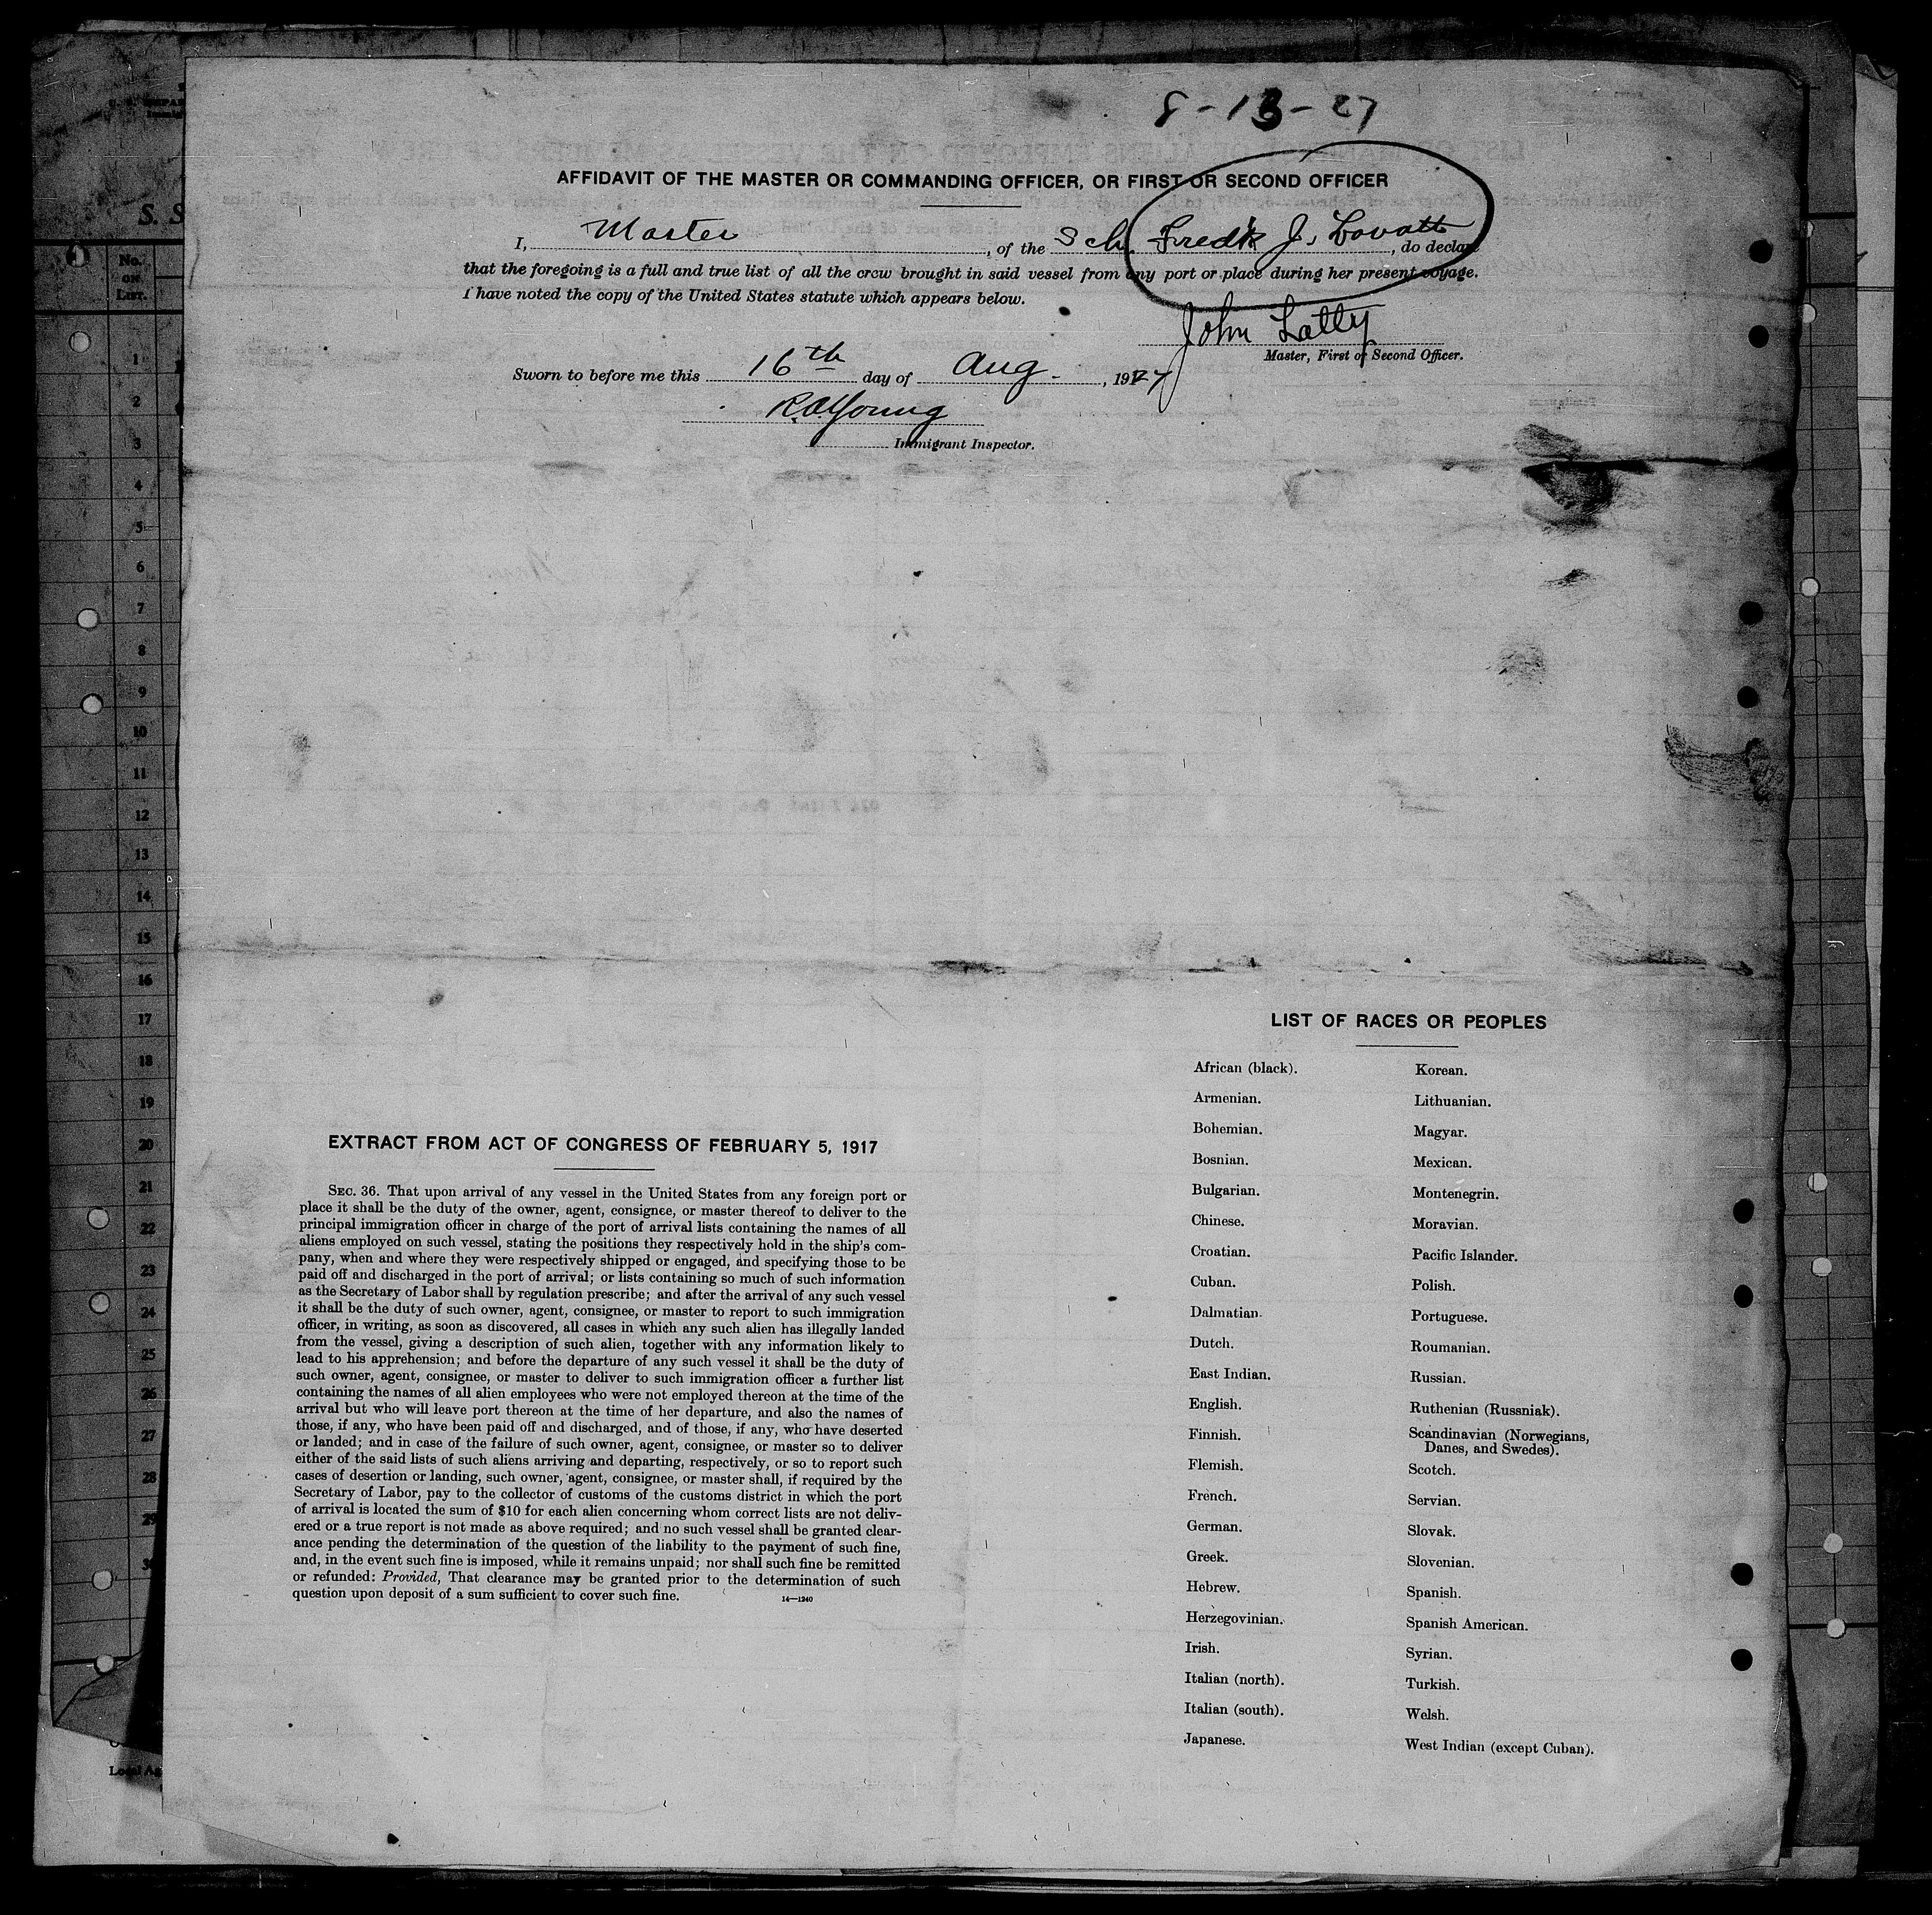 8-13-27
AFFIDAVIT OF THE MASTER OR COMMANDING OFFICER, OR FIRST OR SECOND OFFICER
I, Master, of the Sch. Fredk J. Lovatt, do declare
that the foregoing is a full and true list of all the crew brought in said vessel from any port or place during her present voyage.
I have noted the copy of the United States statute which appears below.
John Latty
Master, First or Second Officer.
Sworn to before me this 16th day of Aug., 1927
Young
Immigrant Inspector.
S. S
No.
ON
LIST.
1
2
3
4
5
6
7
8
9
10
11
12
13
14
15
16
17
18
19
20
21
22
23
24
25
26
27
28
29
30
Local Ag
EXTRACT FROM ACT OF CONGRESS OF FEBRUARY 5, 1917
SEC. 36. That upon arrival of any vessel in the United States from any foreign port or
place it shall be the duty of the owner, agent, consignee, or master thereof to deliver to the
principal immigration officer in charge of the port of arrival lists containing the names of all
aliens employed on such vessel, stating the positions they respectively hold in the ship's com-
pany, when and where they were respectively shipped or engaged, and specifying those to be
paid off and discharged in the port of arrival; or lists containing so much of such information
as the Secretary of Labor shall by regulation prescribe; and after the arrival of any such vessel
it shall be the duty of such owner, agent, consignee, or master to report to such immigration
officer, in writing, as soon as discovered, all cases in which any such alien has illegally landed
from the vessel, giving a description of such alien, together with any information likely to
lead to his apprehension; and before the departure of any such vessel it shall be the duty of
such owner, agent, consignee, or master to deliver to such immigration officer a further list
containing the names of all alien employees who were not employed thereon at the time of the
arrival but who will leave port thereon at the time of her departure, and also the names of
those, if any, who have been paid off and discharged, and of those, if any, who have deserted
or landed; and in case of the failure of such owner, agent, consignee, or master so to deliver
either of the said lists of such aliens arriving and departing, respectively, or so to report such
cases of desertion or landing, such owner, agent, consignee, or master shall, if required by the
Secretary of Labor, pay to the collector of customs of the customs district in which the port
of arrival is located the sum of $10 for each alien concerning whom correct lists are not deliv-
ered or a true report is not made as above required; and no such vessel shall be granted clear-
ance pending the determination of the question of the liability to the payment of such fine,
and, in the event such fine is imposed, while it remains unpaid; nor shall such fine be remitted
or refunded: Provided, That clearance may be granted prior to the determination of such
question upon deposit of a sum sufficient to cover such fine.
14—1240
LIST OF RACES OR PEOPLES
African (black).
Armenian.
Bohemian.
Bosnian.
Bulgarian.
Chinese.
Croatian.
Cuban.
Dalmatian.
Dutch.
East Indian.
English.
Finnish.
Flemish.
French.
German.
Greek.
Hebrew.
Herzegovinian.
Irish.
Italian (north).
Italian (south).
Japanese.
Korean.
Lithuanian.
Magyar.
Mexican.
Montenegrin.
Moravian.
Pacific Islander.
Polish.
Portuguese.
Roumanian.
Russian.
Ruthenian (Russniak).
Scandinavian (Norwegians,
Danes, and Swedes).
Scotch.
Servian.
Slovak.
Slovenian.
Spanish.
Spanish American.
Syrian.
Turkish.
Welsh.
West Indian (except Cuban).